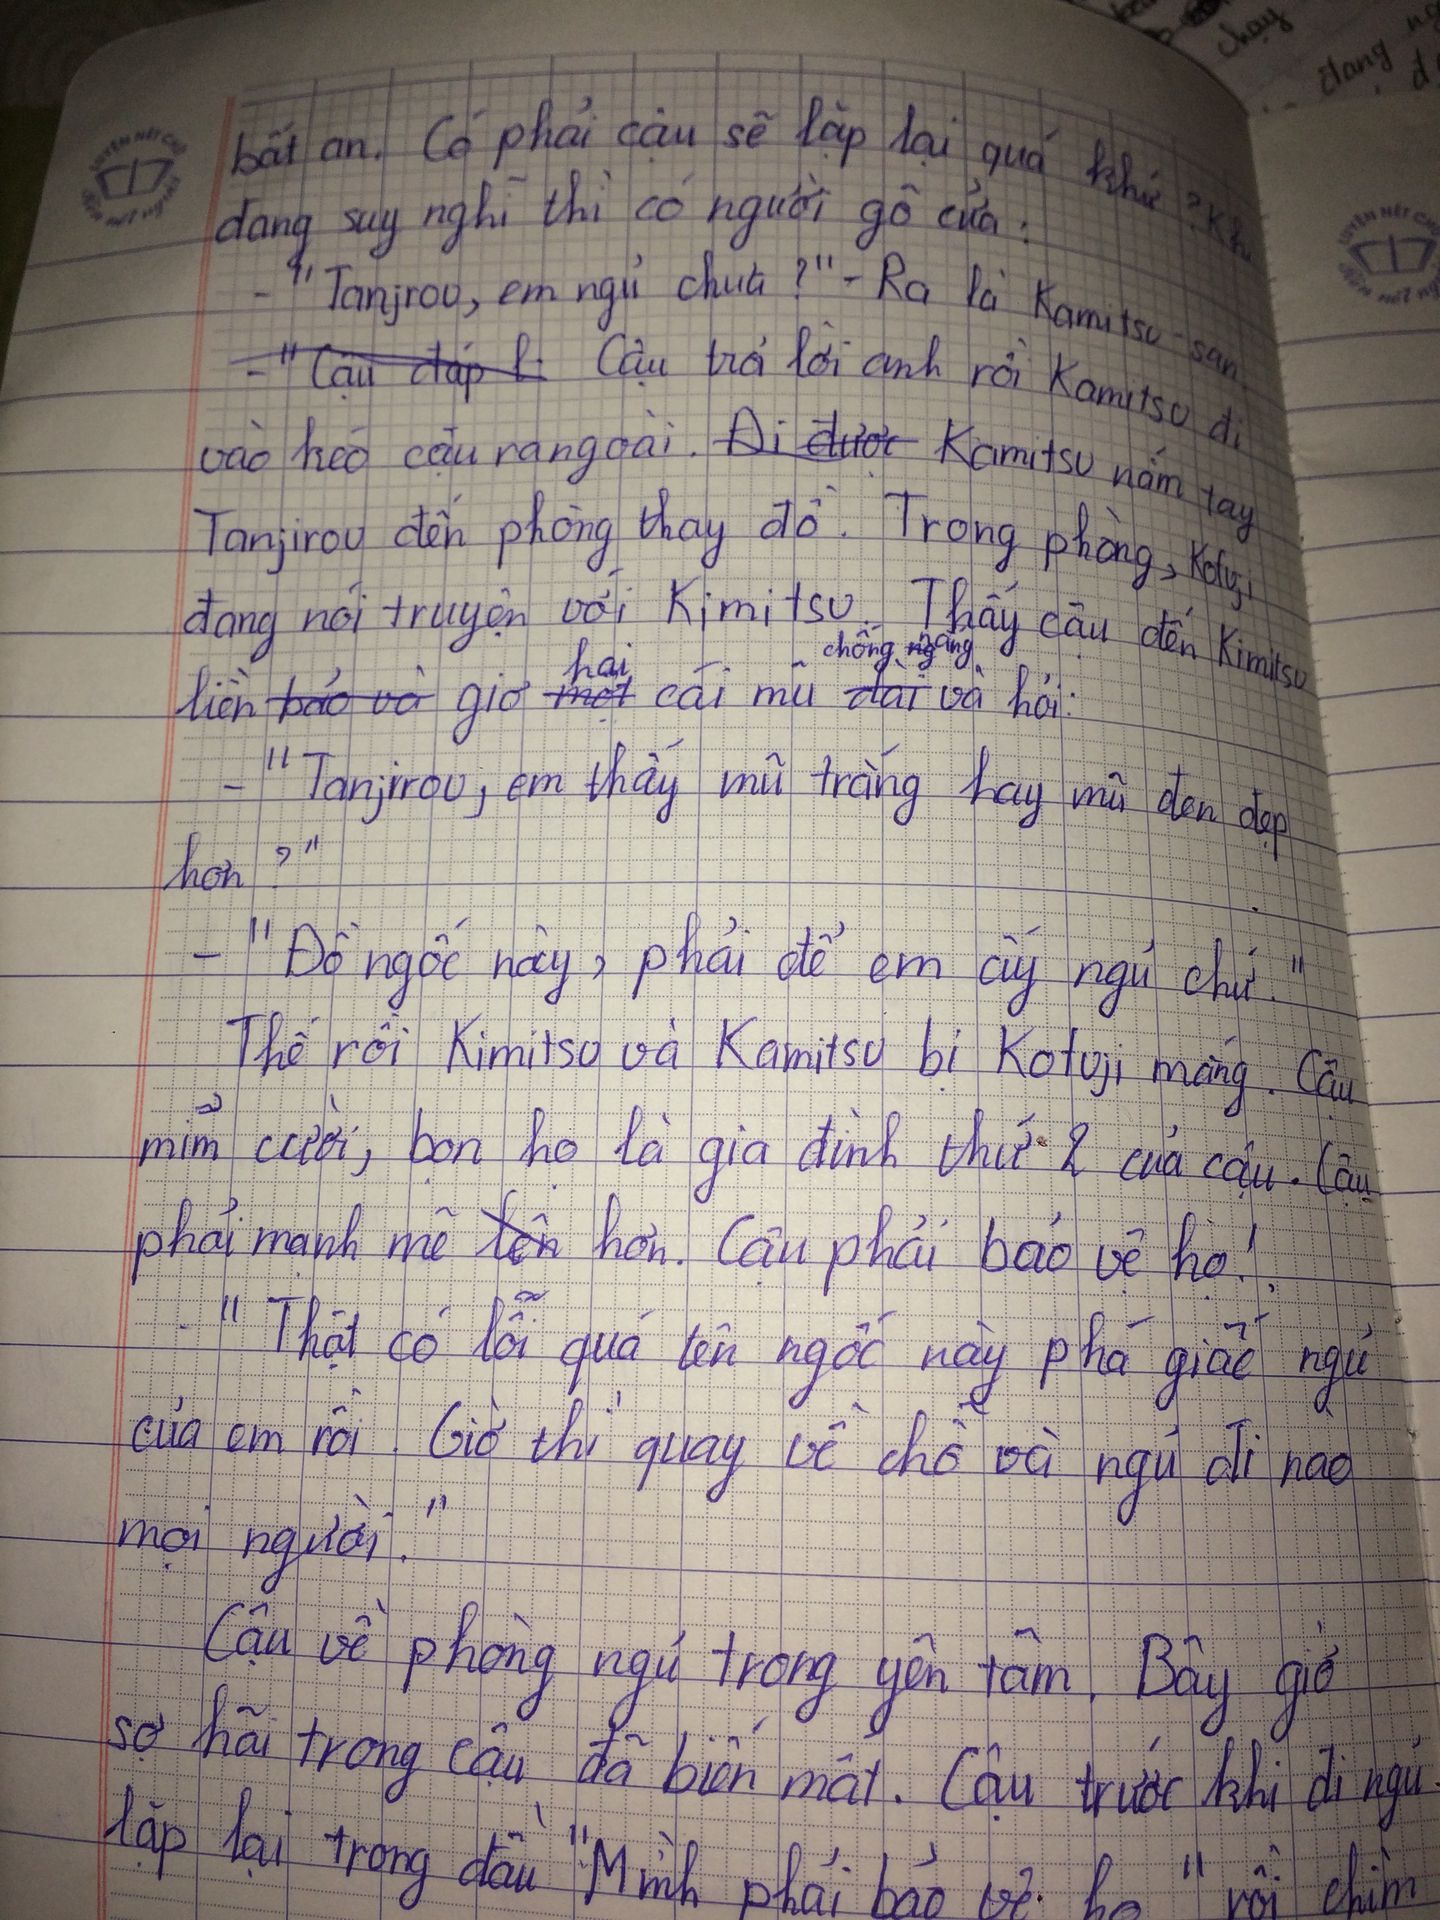 bất an. Có phải cậu sẽ lặp lại quá khứ? Khi
đang suy nghĩ thì có người gõ cửa:
- "Tanjirou, em ngủ chưa?" - Ra là Kamitsu-san
- "Cậu đáp l: Cậu trả lời anh rồi Kamitsu đi
vào kéo cậu ra ngoài. Đi được Kamitsu nắm tay
Tanjirou đến phòng thay đồ. Trong phòng, Kotuji
đang nói truyện với Kimitsu. Thấy cậu đến Kimitsu
liền bảo và giơ một hai cái mũ dài chống nắng và hỏi:
- "Tanjirou, em thấy mũ trắng hay mũ đen đẹp
hơn?"
- "Đồ ngốc này, phải để em ấy ngủ chứ."
Thế rồi Kimitsu và Kamitsu bị Kotuji mắng. Cậu
mỉm cười, bọn họ là gia đình thứ 2 của cậu. Cậu
phải mạnh mẽ lên hơn. Cậu phải bảo vệ họ!
- "Thật có lỗi quá tên ngốc này phá giấc ngủ
của em rồi. Giờ thì quay về chỗ và ngủ đi nào
mọi người."
Cậu về phòng ngủ trong yên tâm. Bây giờ
sợ hãi trong cậu đã biến mất. Cậu trước khi đi ngủ
lặp lại trong đầu "Mình phải bảo vệ họ" rồi chìm
LUYỆN NÉT CHỮ
LUYỆN NÉT CHỮ
chạy
đang